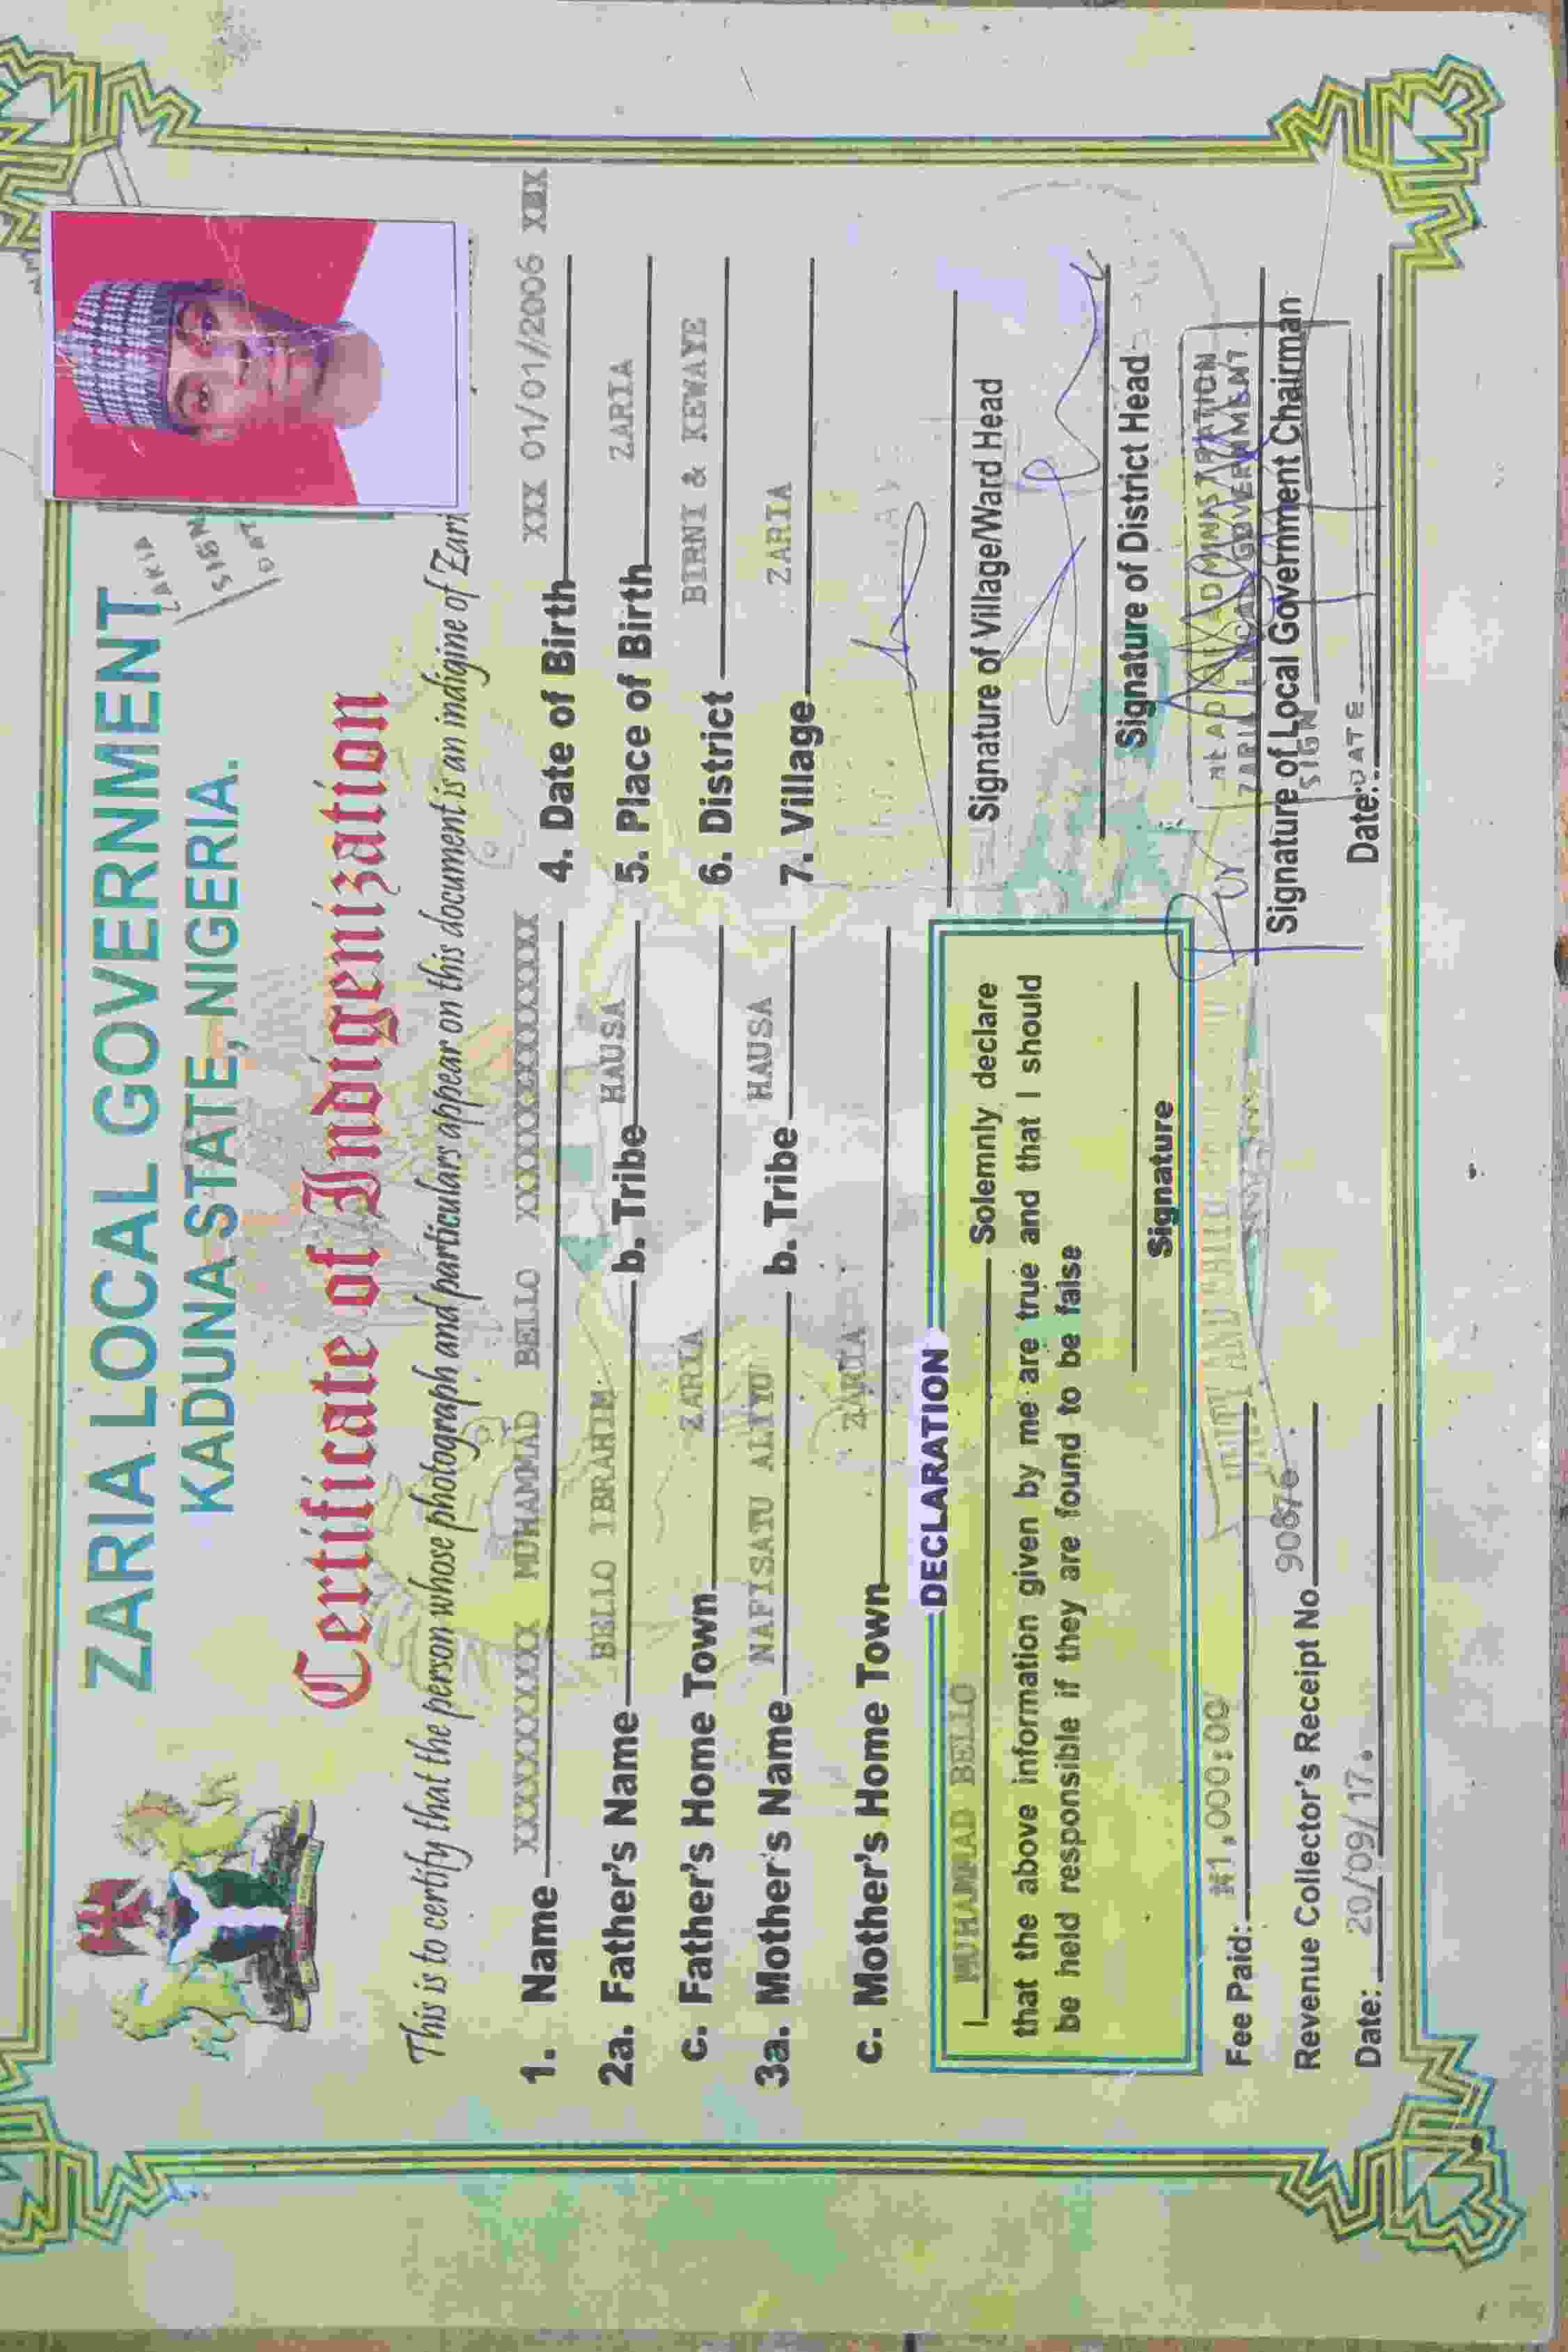 ZARIA LOCAL GOVERNMENT
KADUNA STATE, NIGERIA.
Certificate of Indigenization
This is to certify that the person whose photograph and particulars appear on this document is an indigine of Zari
1. Name XXXXXXXXXX MUHAMMAD BELLO XXXXXXXXXXXXX
2a. Father's Name BELLO IBRAHIM b. Tribe HAUSA
c. Father's Home Town ZARIA
3a. Mother's Name NAFISATU ALIYU b. Tribe HAUSA
c. Mother's Home Town ZARIA
4. Date of Birth XXX 01/01/2006 XXX
5. Place of Birth ZARIA
6. District BIRNI & KEWAYE
7. Village ZARIA
DECLARATION
I MUHAMMAD BELLO Solemnly declare
that the above information given by me are true and that I should
be held responsible if they are found to be false
Signature
Signature of Village/Ward Head
Signature of District Head
ZARIA LOCAL GOVERNMENT
Signature of Local Government Chairman
SIGN
Date: DATE
Fee Paid: ₦1,000:00
Revenue Collector's Receipt No
Date: 20/09/17.
SIGN